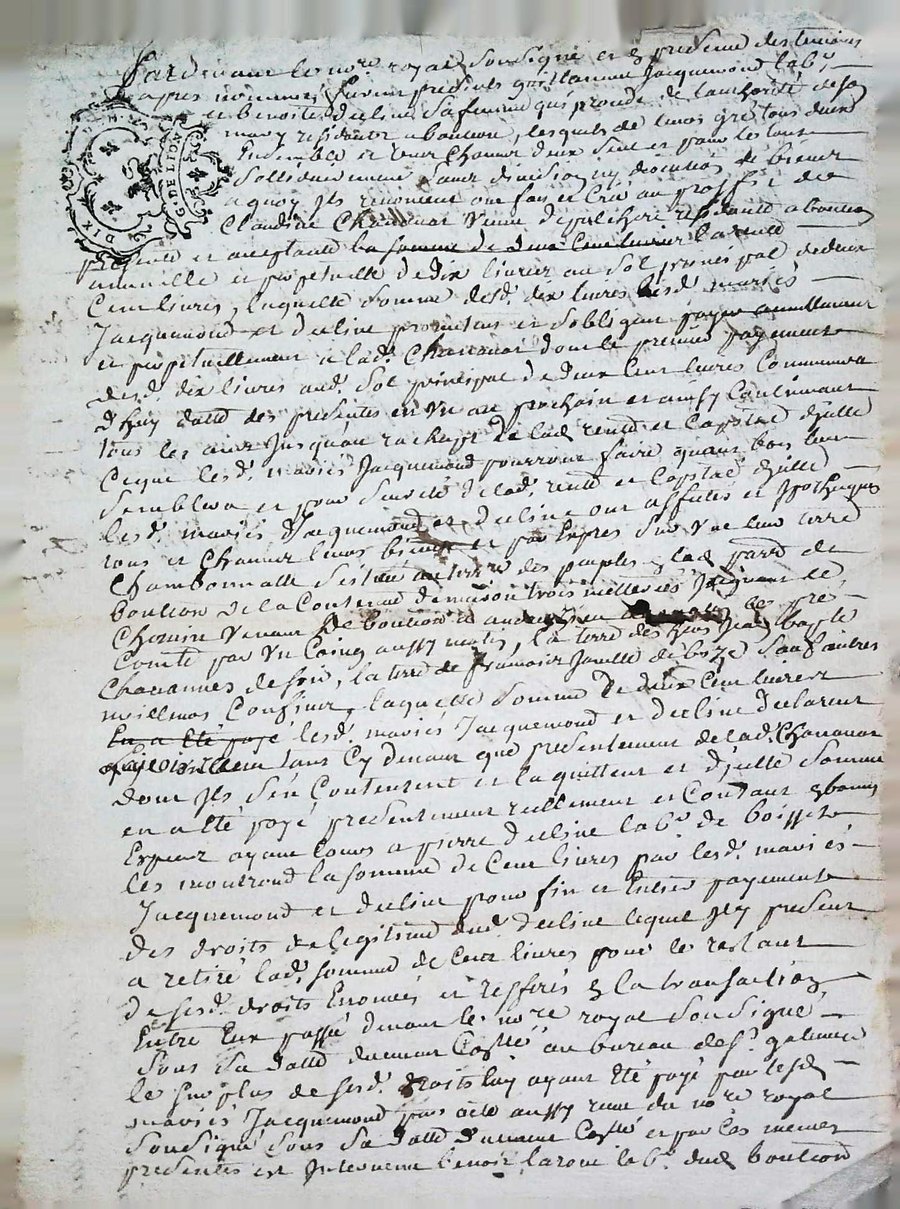 Pardevant le nore. royal Sousigné et En presence des temoins
apres nommés furent presents guillaume Jacquemond labr.
et benoite decline sa femme qui procede de l'authorité de son
mary residents a bouteon, lesquels de leurs gré tous deux
Ensemble et l'un Chacun deux seul et pour le tout
Sollidairement sans division ny discution de biens
a quoy Ils renoncent ont fait et Créé au proffit de
Claudine Chavanat veuve residente a bouteon
presente et acceptante la somme de deux Cent livres la rente
annuelle et perpetuelle de Dix livres au Sol principal de deux
Cent livres, laquelle somme desd. dix livres lesd. mariés
Jacquemond et decline promettent et s'obligent payer annuellement
et perpetuellement a lad. Chavanat dont le premier payement
desd. dix livres aud. Sol principal de deux Cent livres Commencera
d'huy datte des presentes en un an prochain et ainsy Continuant
tous les ans Jusquau rachapt de lad. rente et Capital d'jcelle
Ceque lesd. mariés Jacquemond pourront faire quant bon leur
Semblera et pour Sureté de lad. rente et Capital d'jcelle
lesd. mariés Jacquemond et decline ont affectés et Ipothequés
tous et Chacuns leurs biens et par Exprès Sur Une leur terre
Chambonnalle Scituée au terre des peuples En lad. parr. de
bouteon de la Contenue denviron trois mesteries Joignant le
Chemin Venant de bouteon a les pré
Comte par Un Coing aussy matin, la terre des hoirs Jean bapte
Chavannes de soir, la terre de Janelle de bize Sauf autres
meilleurs Confins, laquelle Somme de deux Cent livres
En a été payé lesd. mariés Jacquemond et decline declarent
tant Cy devant que presentement de lad. Chavanat
dont Ils s'en Contentent et la quittent et d'jcelle Somme
en a été payé presentement reellement et Contant En bonnes
Especes ayant Cours a pierre decline labr. de boisset
les montrond la somme de Cent livres par lesd. mariés
Jacquemond et decline pour fin et Entier payement
des droits de legitime dud. decline lequel Icy present
a retiré lad. somme de Cent livres pour le restant
de sesd. droits Enoncés et refferés En la transaction
Entre Eux passé devant le nore royal Sousigné
Sous Sa datte duement Collé au bureau de St. galmier
le surplus de sesd. droits luy ayant Eté payé par lesd.
mariés Jacquemond par acte aussy reçu du nore royal
Sousigné Sous Sa datte duement Collé et par Ces memes
presentes est Intervenu benoit larone labr. dud. bouteon
G. DE LION
DIX